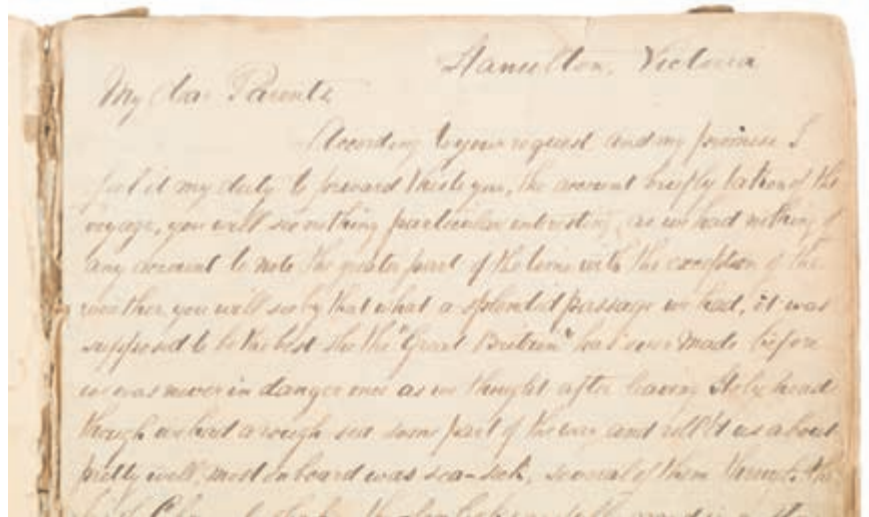 Hamilton, Victoria
My dear Parents
According to your request and my promise I
feel it my duty to forward this to you, the account briefly taken of the
voyage, you will see nothing particular interesting, as we had nothing of
any account to note the greater part of the time with the exception of the
weather you will see by that what a splendid passage we had, it was
supposed to be the best she the "Great Britain" has ever made before
we was never in danger once as we thought after leaving Holyhead
though we had a rough sea some part of the way and roll'd us about
pretty well, most on board was sea-sick, several of them through the